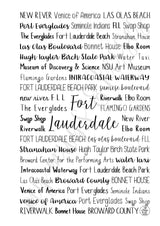 NEW RIVER Venice of America LAS OLAS BEACH
Port Everglades Seminole Indians FLL Swap Shop
The Everglades Fort Lauderdale Beach Stranahan House
Las Olas Boulevard BONNET HOUSE Elbo Room
Hugh Taylor Birch State Park Water Taxi
Museum of Discovery & Science NSU Art Museum
Flamingo Gardens INTRACOASTAL WATERWAY
FORT LAUDERDALE BEACH PARK sunrise boulevard
new river FLL Fort RIVERWALK
The Everglades FLAMINGO GARDENS
Swap Shop Lauderdale New River
Riverwalk Elbo Room
FORT LAUDERDALE BEACH Las Olas Boulevard FLL
Stranahan House Hugh Taylor Birch State Park
Broward Center For the Performing Arts water taxi
Intracoastal Waterway Fort Lauderdale Beach Park
Las Olas Beach Broward County BONNET HOUSE
Venice of America Port Everglades Seminole Indians
venice of America Port Everglades Swap Shop
RIVERWALK Bonnet House BROWARD COUNTY